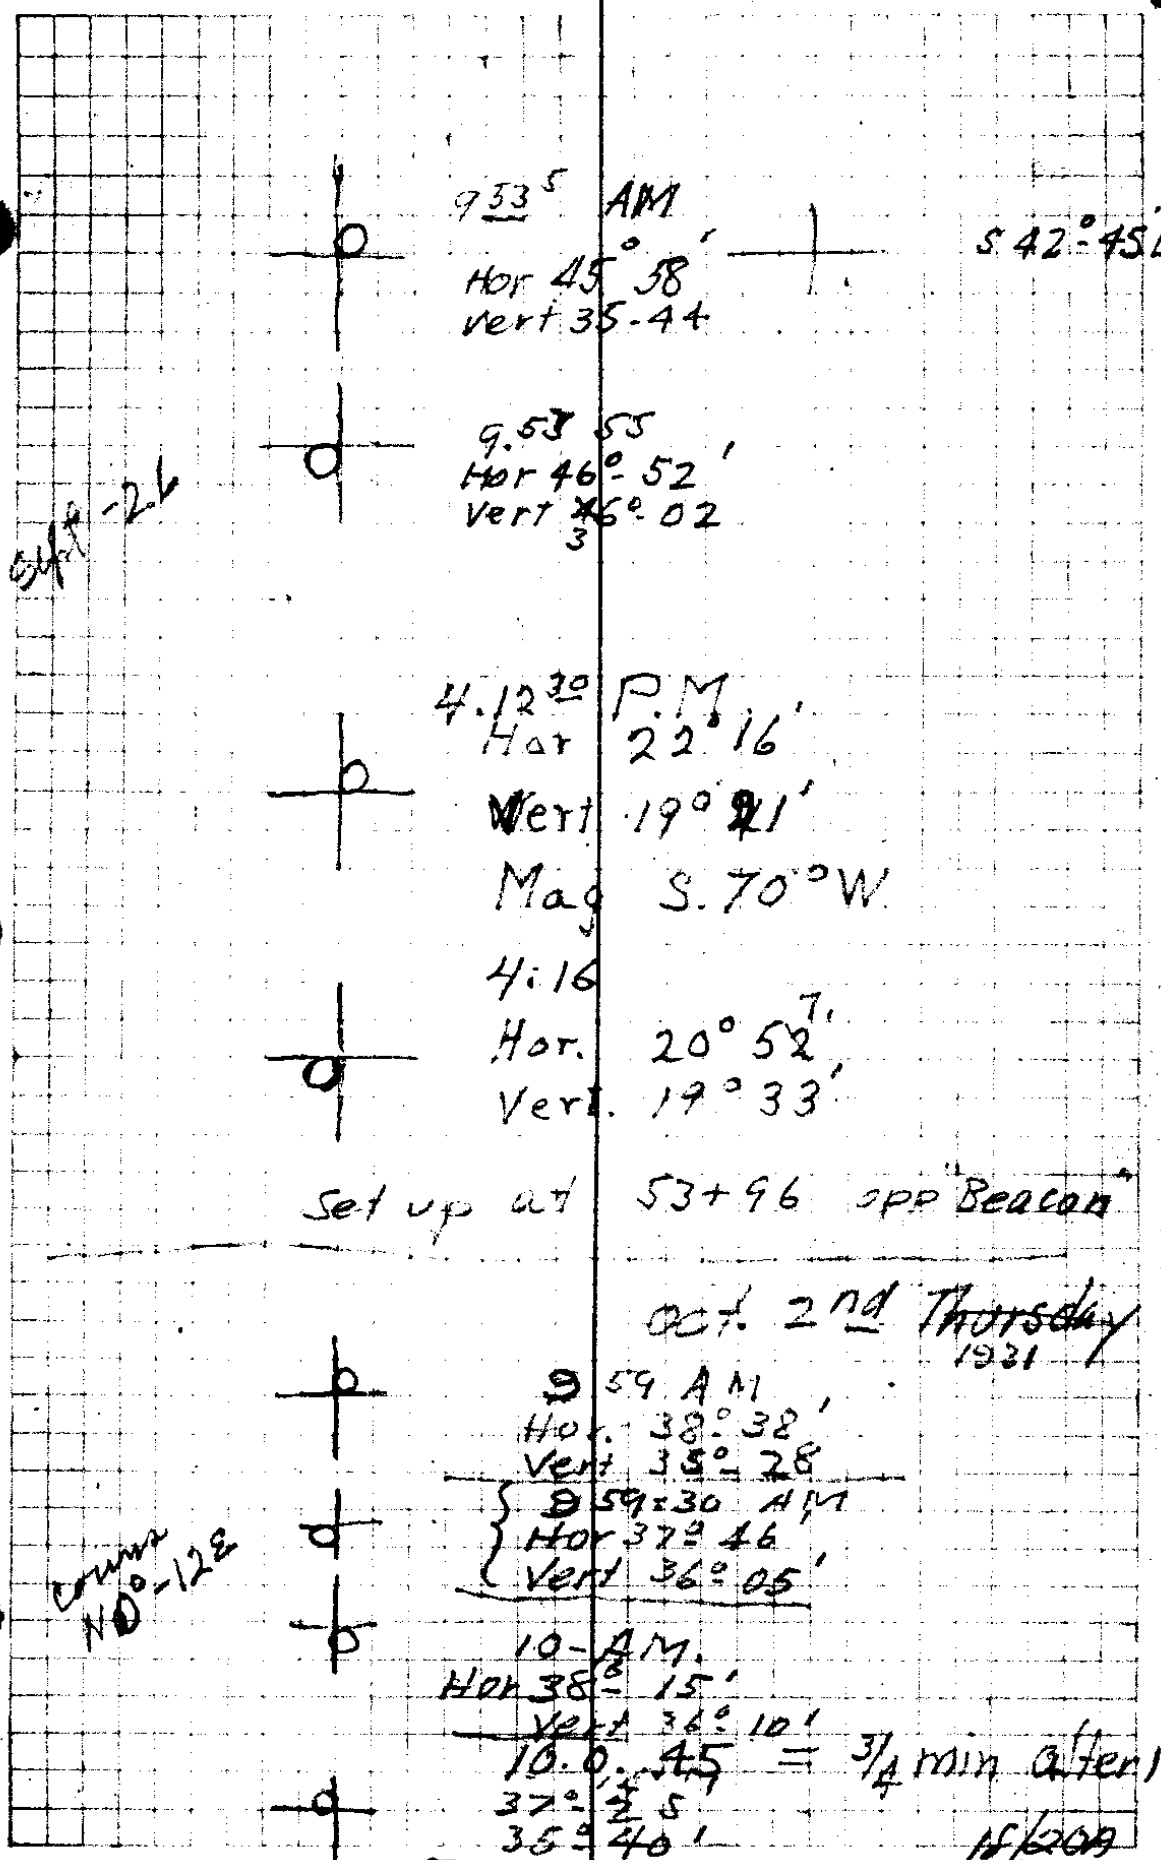 9 53 5 AM
S 42°-45'
Hor 45° 58'
Vert 35-44
9.53 55
Hor 46°-52'
Vert 36°-02
Sept-26
4.12 30 P.M.
Hor 22° 16'
Vert 19° 41'
Mag S. 70° W.
4:16
Hor. 20° 57'
Vert. 19° 33'
Set up at 53+96 opp "Beacon"
Oct. 2nd Thursday
1931
9 59 AM
Hor. 38°-38'
Vert 35°-28
9 59:30 AM
Hor 37°-46'
Vert 36°-05'
Course
N0°-12E
10-AM.
Hor 38°-15'
Vert 36°-10'
10.0..45 = 3/4 min after
37°-
35°-40'